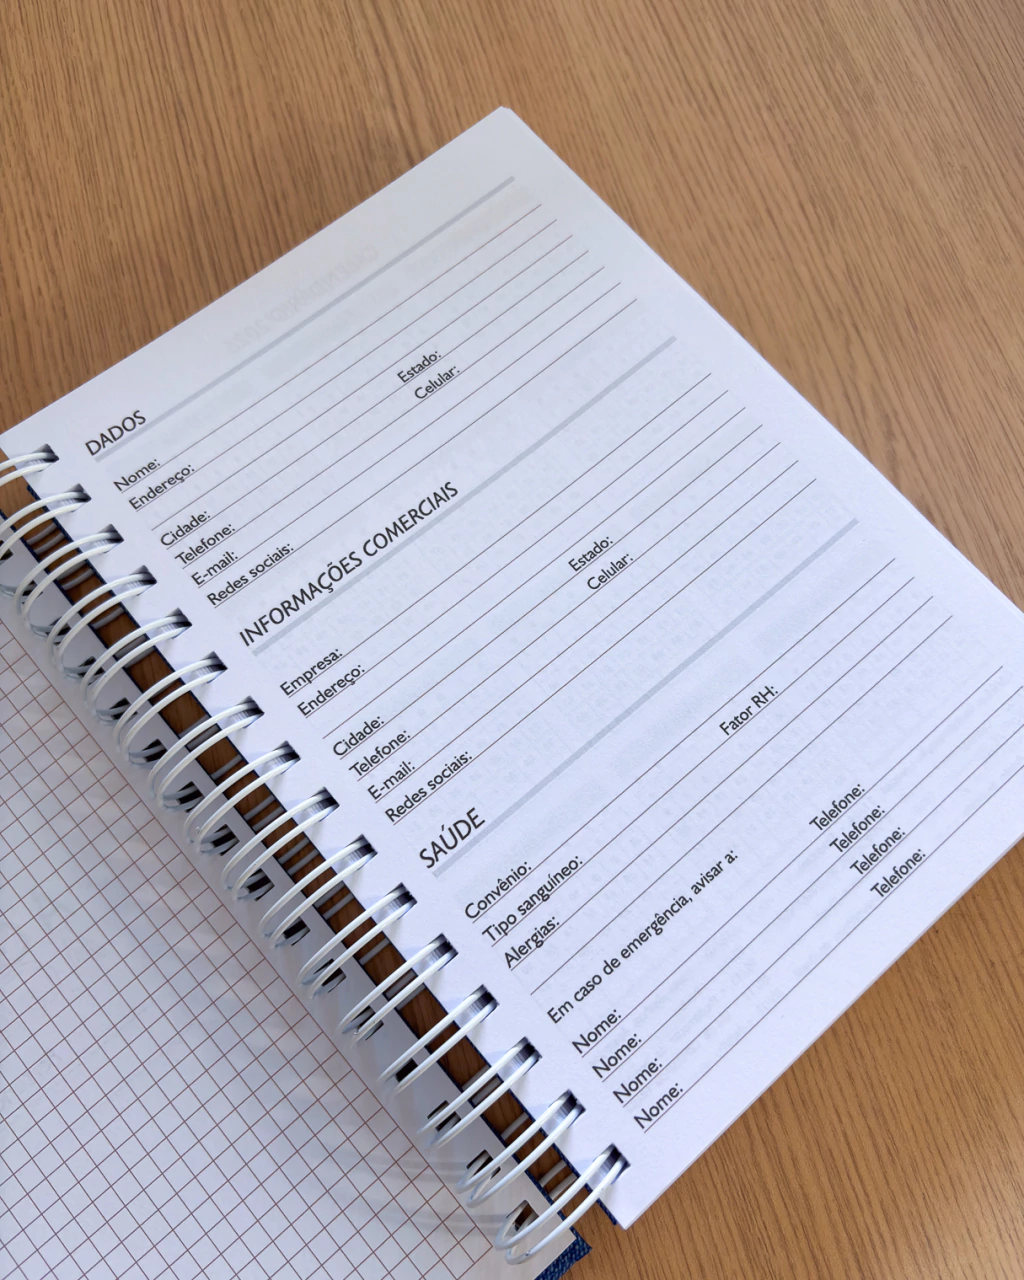 DADOS
Nome:
Endereço:
Cidade: Estado:
Telefone: Celular:
E-mail:
Redes sociais:
INFORMAÇÕES COMERCIAIS
Empresa:
Endereço:
Cidade: Estado:
Telefone: Celular:
E-mail:
Redes sociais:
SAÚDE
Convênio:
Tipo sanguíneo: Fator RH:
Alergias:
Em caso de emergência, avisar a:
Nome: Telefone:
Nome: Telefone:
Nome: Telefone:
Nome: Telefone: